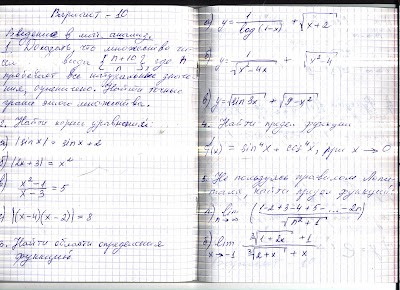 Вариант - 10
Введение в мат. анализ.
1. Доказать, что множество чи-
сел вида { n+10 / n }, где n
пробегает все натуральные значе-
ния, ограничено. Найти точные
грани этого множества.
2. Найти корни уравнения:
а) |sin x| = sin x + 2
б) |2x+3| = x²
в) (x²-1)/(x-3) = 5
г) |(x-4)(x-2)| = 8
3. Найти области определения
функцию
а) y = 1/log(1-x) + √(x+2)
б) y = 1/√(x²-4x) + √(x²-4)
в) y = √(sin 3x) + √(9-x²)
4. Найти предел функции
f(x) = sin⁴x + cos⁴x, при x → 0
5. Не пользуясь правилом Лопи-
таля, найти предел функций
а) lim n→∞ ((1-2+3-4+5-...-2n)/√(n²+1))
б) lim x→-1 (∛(1+2x) + 1)/(∛(2+x) + x)